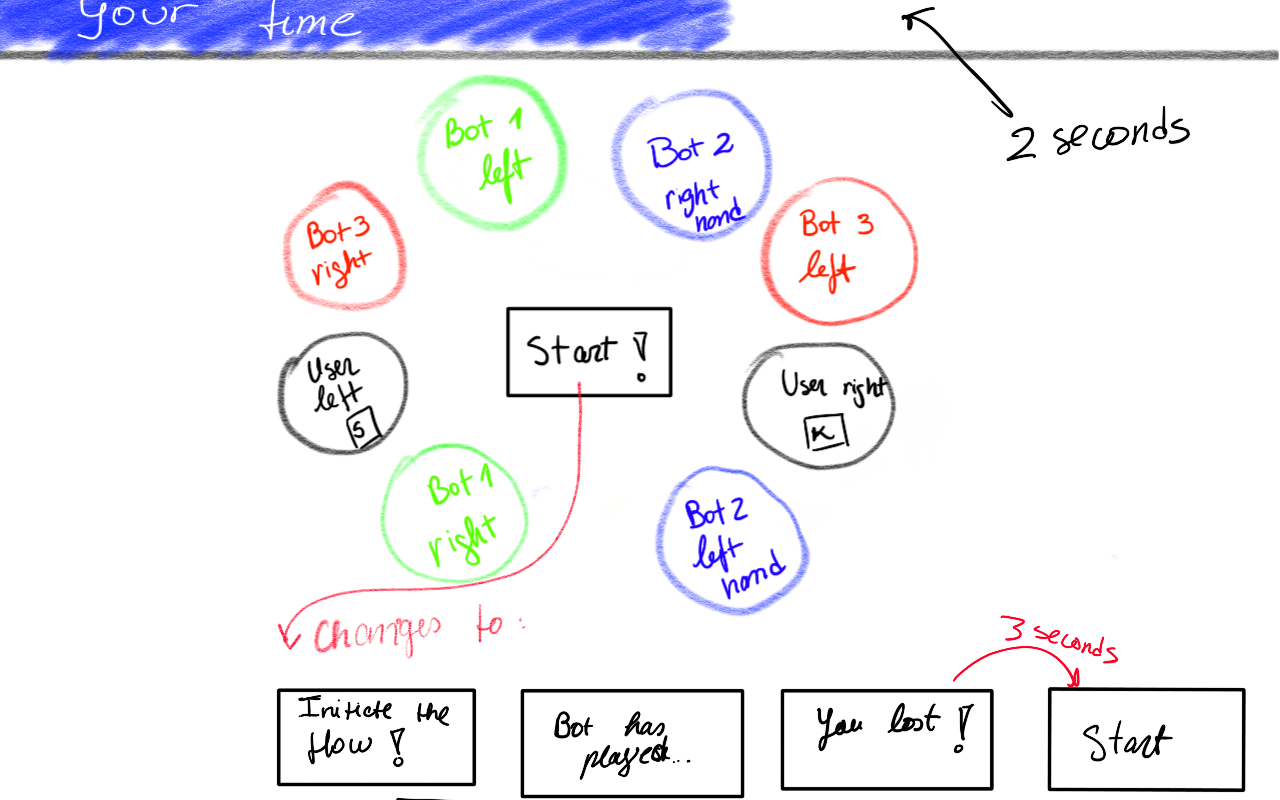 Your time
2 seconds
Bot 1
left
Bot 2
right
hand
Bot 3
right
Bot 3
left
Start!
User
left
S
User right
K
Bot 1
right
Bot 2
left
hand
Changes to:
3 seconds
Iniciate the
flow!
Bot has
played...
You lost!
Start